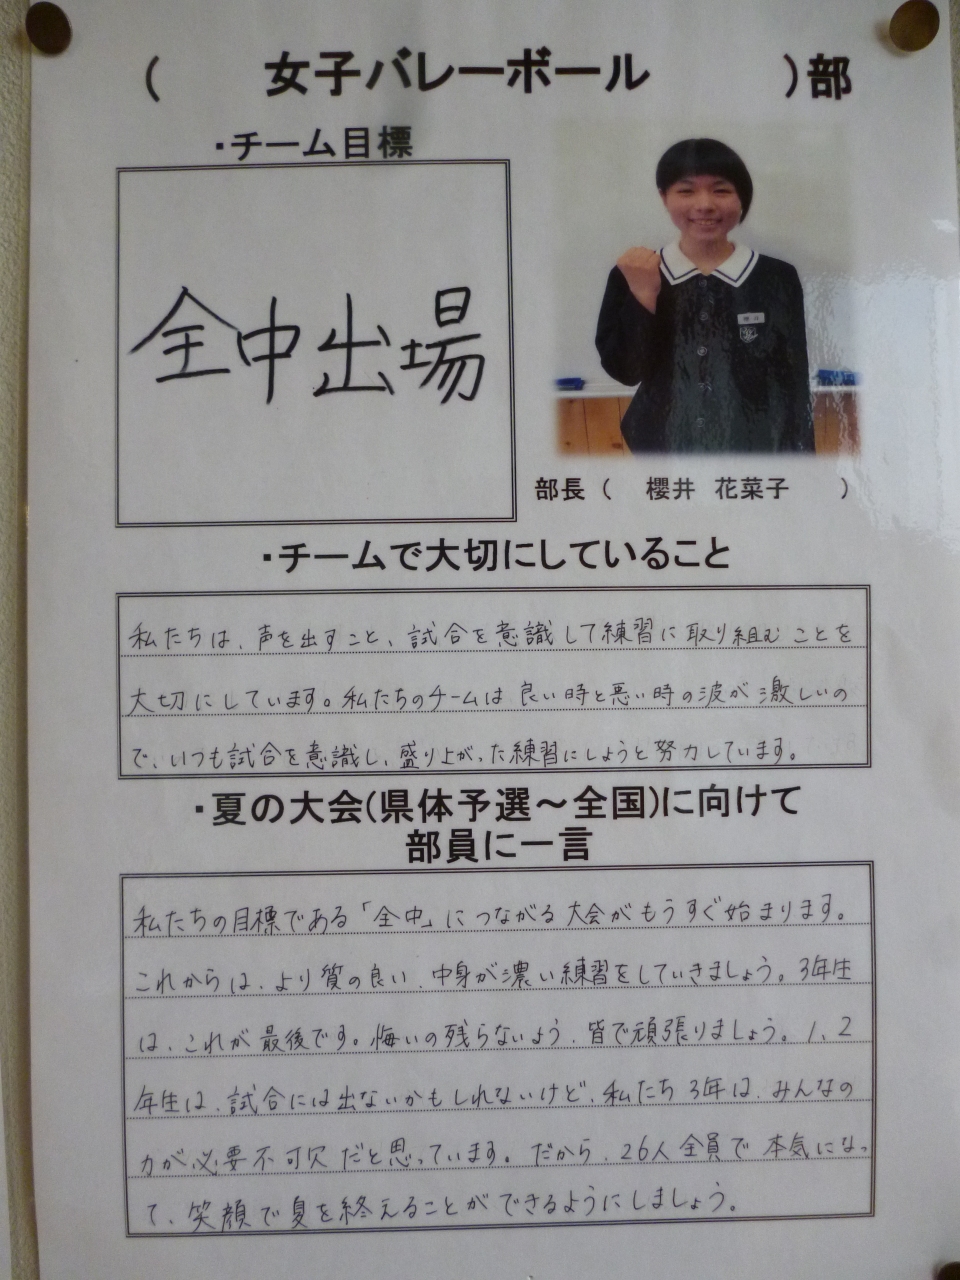 ( 女子バレーボール )部
・チーム目標
全中出場
部長 ( 櫻井 花菜子 )
・チームで大切にしていること
私たちは、声を出すこと、試合を意識して練習に取り組むことを
大切にしています。私たちのチームは良い時と悪い時の波が激しいの
で、いつも試合を意識し、盛り上がった練習にしようと努力しています。
・夏の大会(県体予選～全国)に向けて
部員に一言
私たちの目標である「全中」につながる大会がもうすぐ始まります。
これからは、より質の良い、中身が濃い練習をしていきましょう。3年生
は、これが最後です。悔いの残らないよう、皆で頑張りましょう。1、2
年生は、試合には出ないかもしれないけど、私たち3年は、みんなの
力が必要不可欠だと思っています。だから、26人全員で本気になっ
て、笑顔で夏を終えることができるようにしましょう。